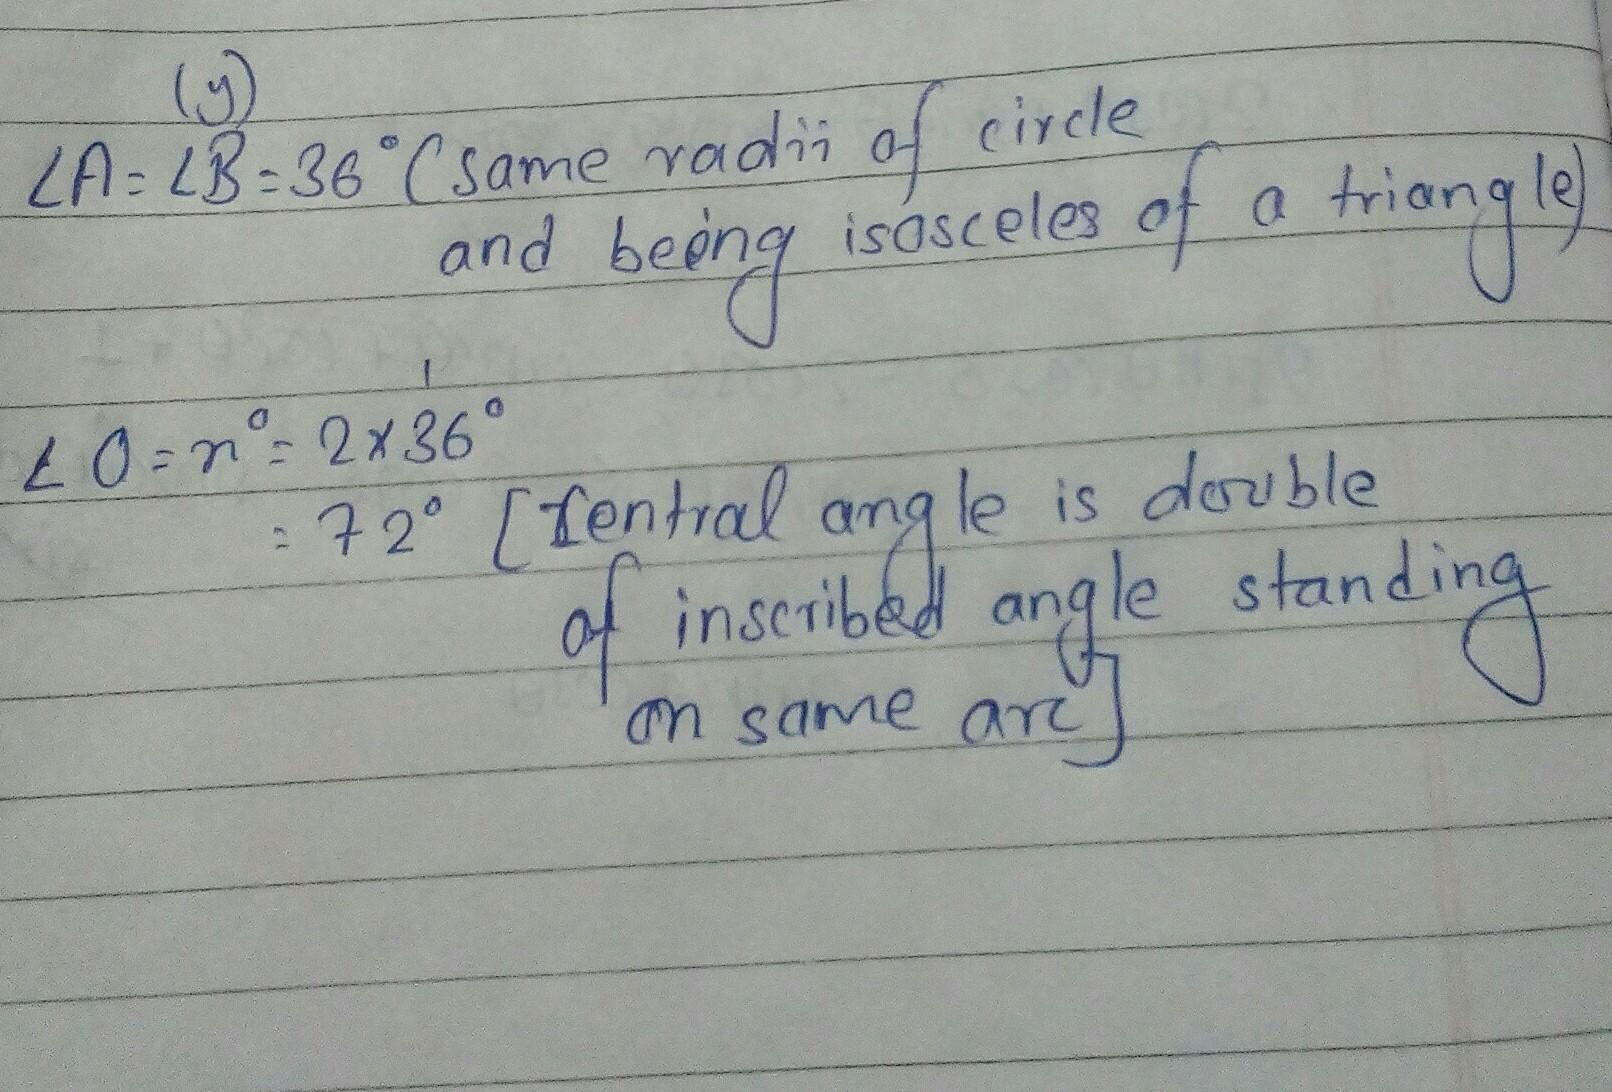 (y)
∠A=∠B=36°(same radii of circle
and being isosceles of a triangle)
∠O=x°=2×36°
=72° [central angle is double
of inscribed angle standing
on same arc]